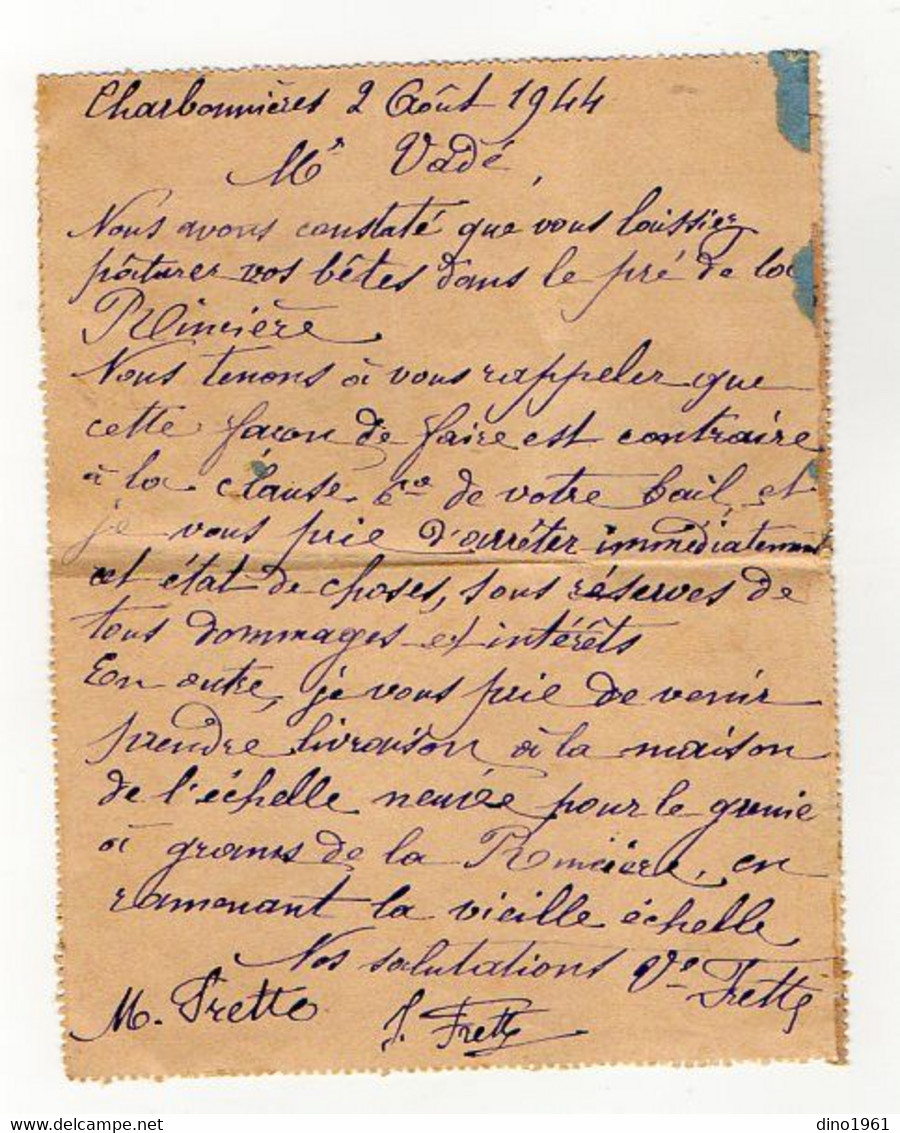 Charbonnières 2 Août 1944
Mr Vadé,
Nous avons constaté que vous laissiez
pâturer vos bêtes dans le pré de la
Rincière
Nous tenons à vous rappeler que
cette façon de faire est contraire
à la clause de votre bail, et
je vous prie d'arrêter immédiatement
cet état de choses, sous réserves de
tous dommages et intérêts
En outre, je vous prie de venir
prendre livraison à la maison
de l'échelle neuve pour le
à grains de la Rincière, en
ramenant la vieille échelle
Nos salutations Ve Frette
M. Frette J. Frette
dino1961